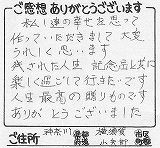 ご感想 ありがとうございます
私し達の幸せを思って
作っていただきまして 大変
うれしく思います
残された人生 記念品と共に
楽しく過ごして行きたいです
人生最高の贈りものです
ありがとうございました
ご住所 神奈川 都道府県 横須賀 市区町村